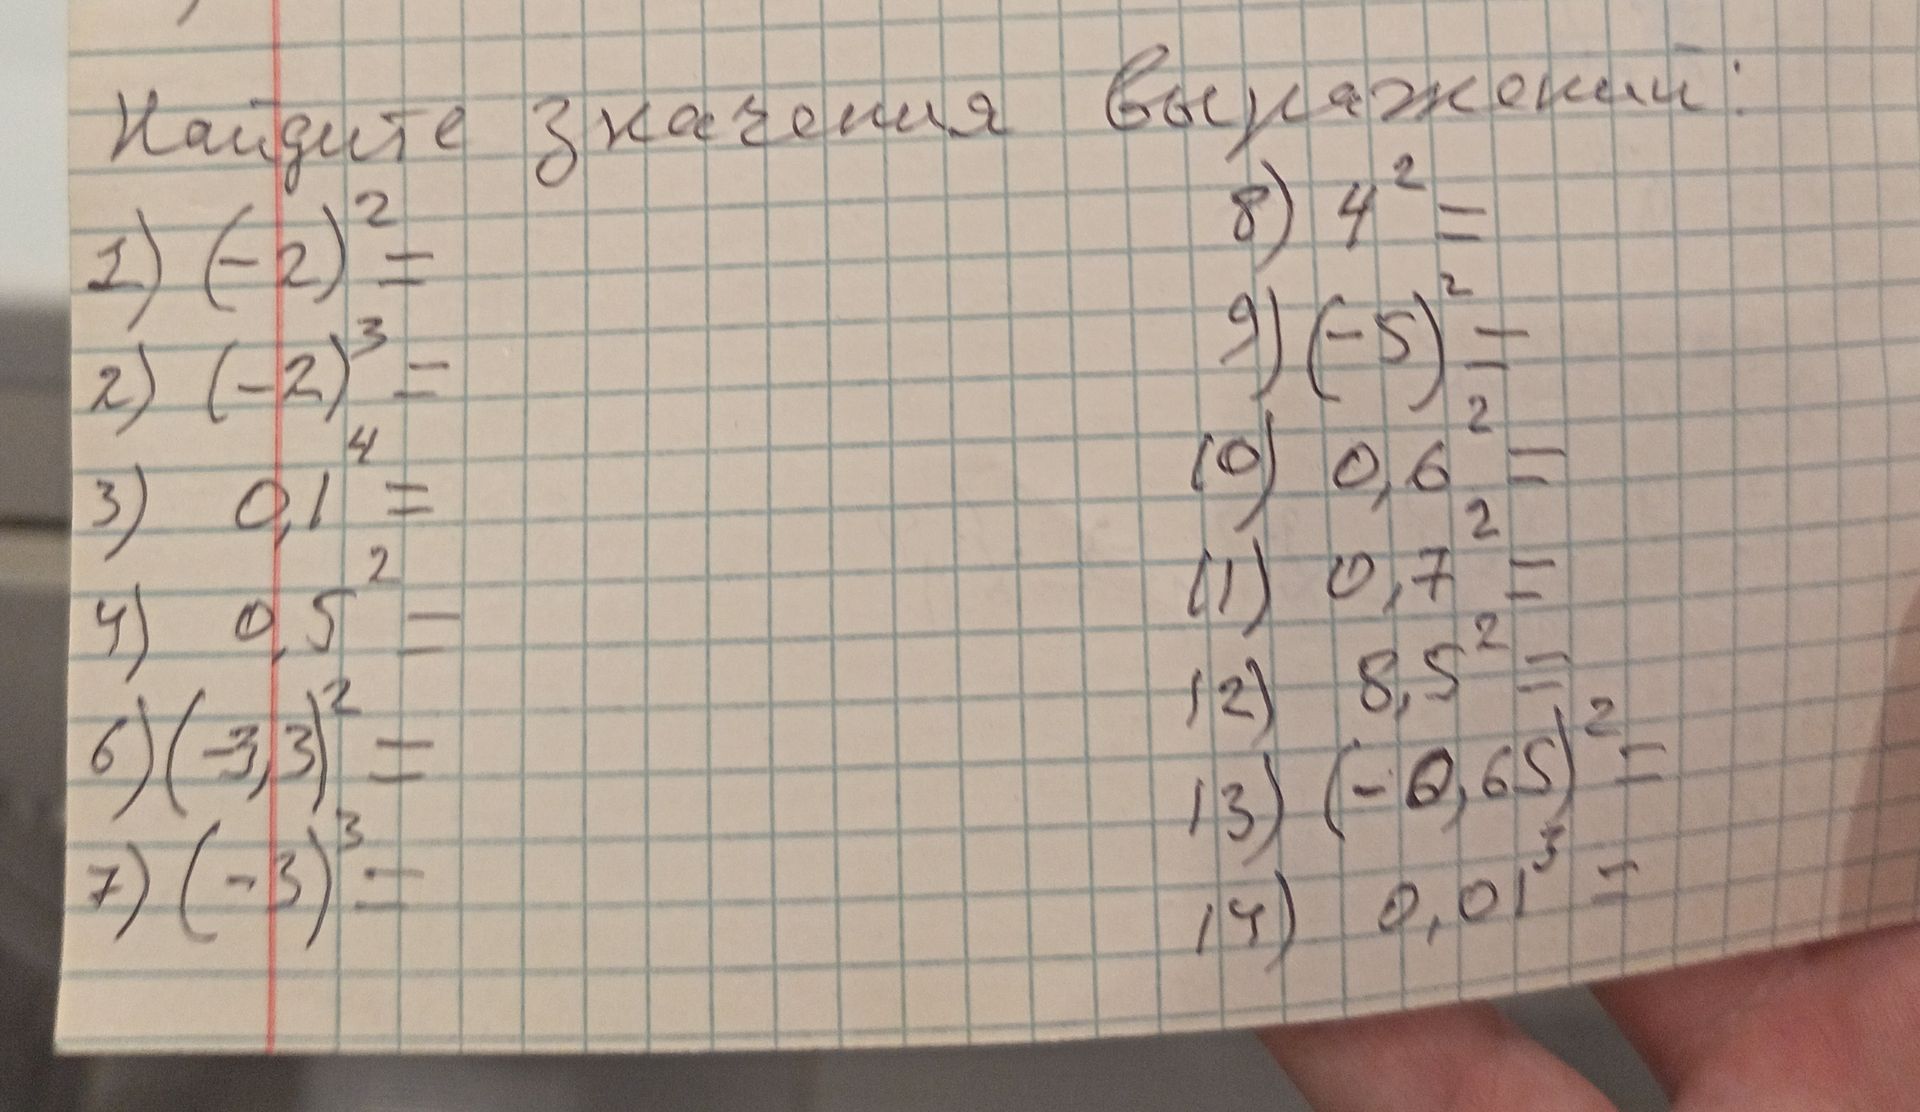 Найдите значения выражений:
1) (-2)² =
2) (-2)³ =
3) 0,1⁴ =
4) 0,5² =
6) (-3,3)² =
7) (-3)³ =
8) 4² =
9) (-5)² =
10) 0,6² =
11) 0,7² =
12) 8,5² =
13) (-0,65)² =
14) 0,01³ =